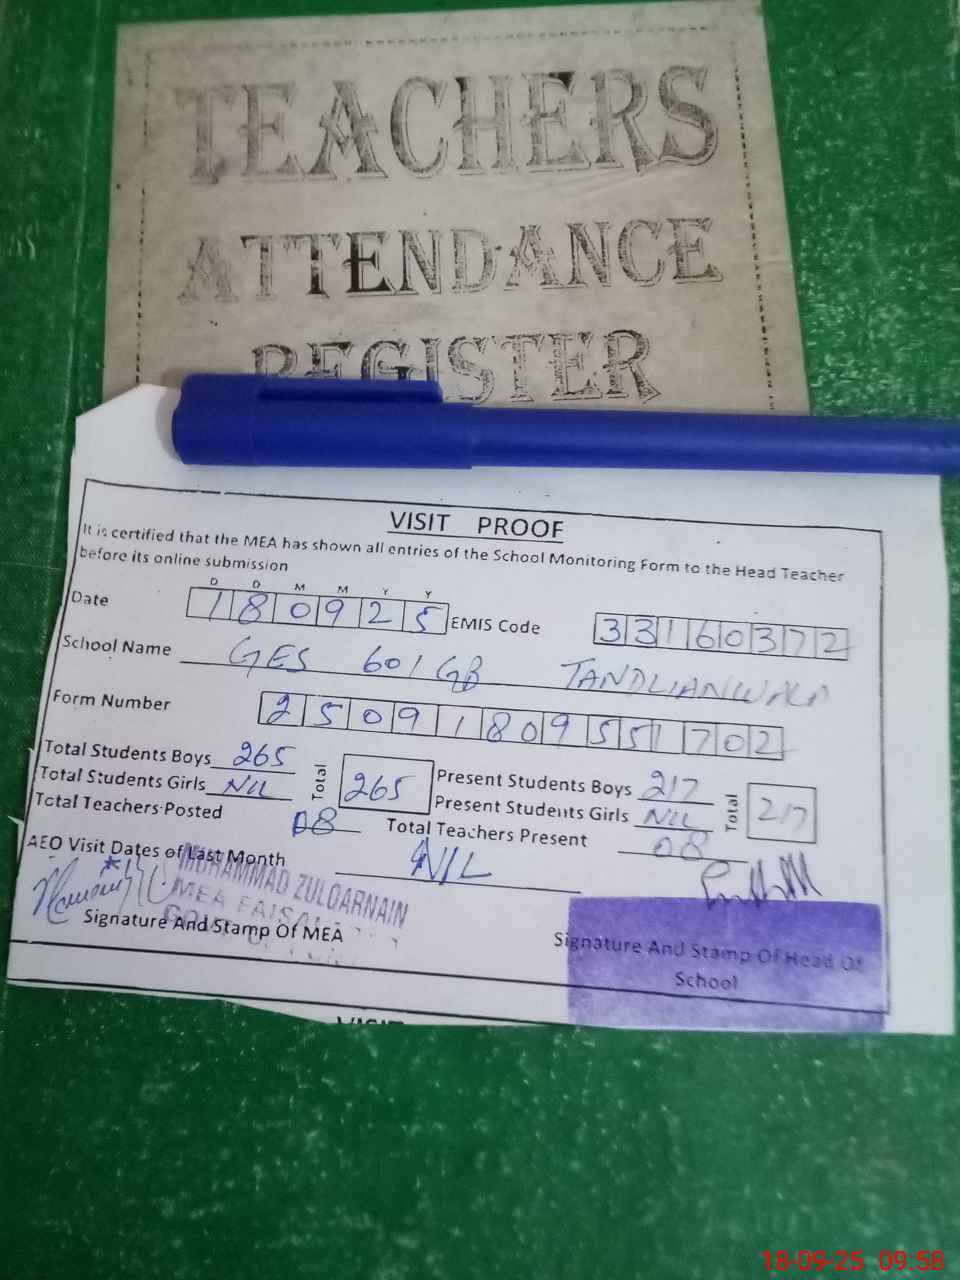 TEACHERS
ATTENDANCE
REGISTER
VISIT PROOF
It is certified that the MEA has shown all entries of the School Monitoring Form to the Head Teacher
before its online submission
D D M M Y Y
Date 180925 EMIS Code 33160372
School Name GES 601 GB TANDLIANWALA
Form Number 25091809551702
Total Students Boys 265 Total 265 Present Students Boys 217 Total 217
Total Students Girls NIL Present Students Girls NIL
Total Teachers Posted 08 Total Teachers Present 08
AEO Visit Dates of Last Month NIL
MUHAMMAD ZULQARNAIN
MEA FAISAL
Signature And Stamp Of MEA
Signature And Stamp Of Head Of
School
18-09-25 09:58